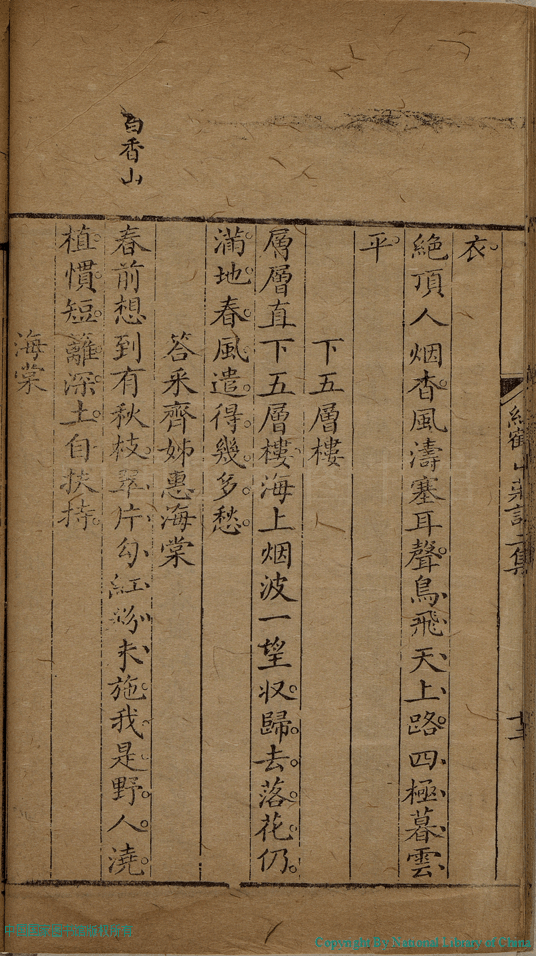 衣
絶頂人烟杳風濤塞耳聲鳥飛天上路四極暮雲
平
下五層樓
層層直下五層樓海上烟波一望収歸去落花仍
滿地春風遣得幾多愁
答采齊姊惠海棠
春前想到有秋枝翠片勻紅粉未施我是野人澆
植慣短籬深土自扶持
海棠
白香山
Copyright By National Library of China